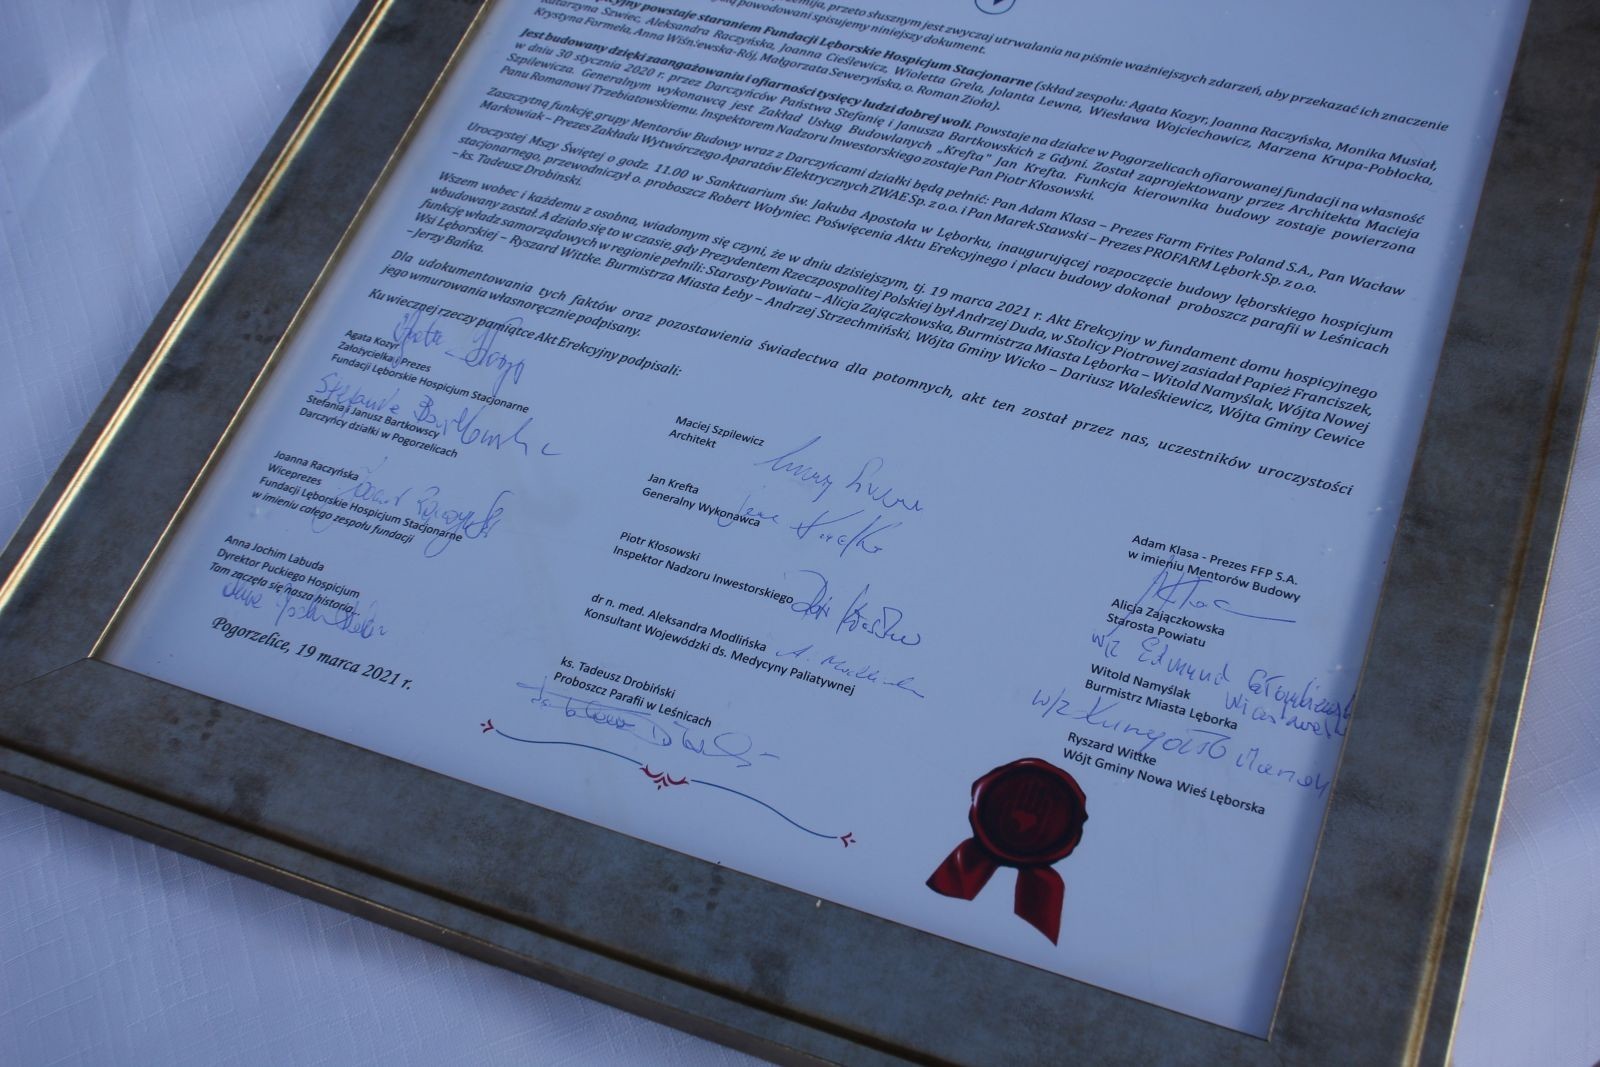 przeto słusznym jest zwyczaj utrwalania na piśmie ważniejszych zdarzeń, aby przekazać ich znaczenie
powodowani spisujemy niniejszy dokument.
powstaje staraniem Fundacji Lęborskie Hospicjum Stacjonarne (skład zespołu: Agata Kozyr, Joanna Raczyńska, Monika Musiał,
Katarzyna Szwiec, Aleksandra Raczyńska, Joanna Cieślewicz, Wioletta Grela, Jolanta Lewna, Wiesława Wojciechowicz, Marzena Krupa-Pobłocka,
Krystyna Formela, Anna Wiśniewska-Rój, Małgorzata Seweryńska, o. Roman Zioła).
Jest budowany dzięki zaangażowaniu i ofiarności tysięcy ludzi dobrej woli. Powstaje na działce w Pogorzelicach ofiarowanej fundacji na własność
w dniu 30 stycznia 2020 r. przez Darczyńców Państwa Stefanię i Janusza Bartkowskich z Gdyni. Został zaprojektowany przez Architekta Macieja
Szpilewicza. Generalnym wykonawcą jest Zakład Usług Budowlanych „Krefta” Jan Krefta. Funkcja kierownika budowy zostaje powierzona
Panu Romanowi Trzebiatowskiemu. Inspektorem Nadzoru Inwestorskiego zostaje Pan Piotr Kłosowski.
Zaszczytną funkcję grupy Mentorów Budowy wraz z Darczyńcami działki będą pełnić: Pan Adam Klasa – Prezes Farm Frites Poland S.A., Pan Wacław
Markowiak – Prezes Zakładu Wytwórczego Aparatów Elektrycznych ZWAE Sp. z o.o. i Pan Marek Stawski – Prezes PROFARM Lębork Sp. z o.o.
Uroczystej Mszy Świętej o godz. 11.00 w Sanktuarium św. Jakuba Apostoła w Lęborku, inaugurującej rozpoczęcie budowy lęborskiego hospicjum
stacjonarnego, przewodniczył o. proboszcz Robert Wołyniec. Poświęcenia Aktu Erekcyjnego i placu budowy dokonał proboszcz parafii w Leśnicach
– ks. Tadeusz Drobinski.
Wszem wobec i każdemu z osobna, wiadomym się czyni, że w dniu dzisiejszym, tj. 19 marca 2021 r. Akt Erekcyjny w fundament domu hospicyjnego
wbudowany został. A działo się to w czasie, gdy Prezydentem Rzeczpospolitej Polskiej był Andrzej Duda, w Stolicy Piotrowej zasiadał Papież Franciszek,
funkcję władz samorządowych w regionie pełnili: Starosty Powiatu – Alicja Zajączkowska, Burmistrza Miasta Lęborka – Witold Namyślak, Wójta Nowej
Wsi Lęborskiej – Ryszard Wittke. Burmistrza Miasta Łeby – Andrzej Strzechmiński, Wójta Gminy Wicko – Dariusz Waleśkiewicz, Wójta Gminy Cewice
– Jerzy Bańka.
Dla udokumentowania tych faktów oraz pozostawienia świadectwa dla potomnych, akt ten został przez nas, uczestników uroczystości
jego wmurowania własnoręcznie podpisany.
Ku wiecznej rzeczy pamiątce Akt Erekcyjny podpisali:
Agata Kozyr
Założycielka i Prezes
Fundacji Lęborskie Hospicjum Stacjonarne
Stefania Bartkowska
Stefania i Janusz Bartkowscy
Darczyńcy działki w Pogorzelicach
Joanna Raczyńska
Wiceprezes
Fundacji Lęborskie Hospicjum Stacjonarne
w imieniu całego zespołu fundacji
Anna Jochim Labuda
Dyrektor Puckiego Hospicjum
Tam zaczęła się nasza historia...
Pogorzelice, 19 marca 2021 r.
Maciej Szpilewicz
Architekt
Jan Krefta
Generalny Wykonawca
Jan Krefta
Piotr Kłosowski
Inspektor Nadzoru Inwestorskiego
dr n. med. Aleksandra Modlińska
Konsultant Wojewódzki ds. Medycyny Paliatywnej
A. Modlińska
ks. Tadeusz Drobiński
Proboszcz Parafii w Leśnicach
Adam Klasa - Prezes FFP S.A.
w imieniu Mentorów Budowy
Alicja Zajączkowska
Starosta Powiatu
w/z Edmund
Witold Namyślak
Burmistrz Miasta Lęborka
w/z
Ryszard Wittke
Wójt Gminy Nowa Wieś Lęborska